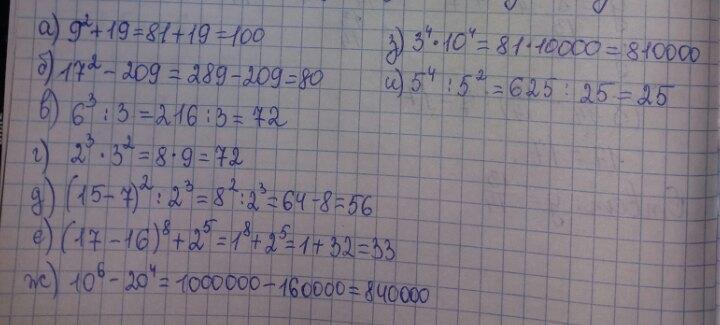 а) 9²+19=81+19=100
б) 17²-209=289-209=80
в) 6³:3=216:3=72
г) 2³·3²=8·9=72
д) (15-7)²:2³=8²:2³=64-8=56
е) (17-16)⁸+2⁵=1⁸+2⁵=1+32=33
ж) 10⁶-20⁴=1000000-160000=840000
з) 3⁴·10⁴=81·10000=810000
и) 5⁴:5²=625:25=25